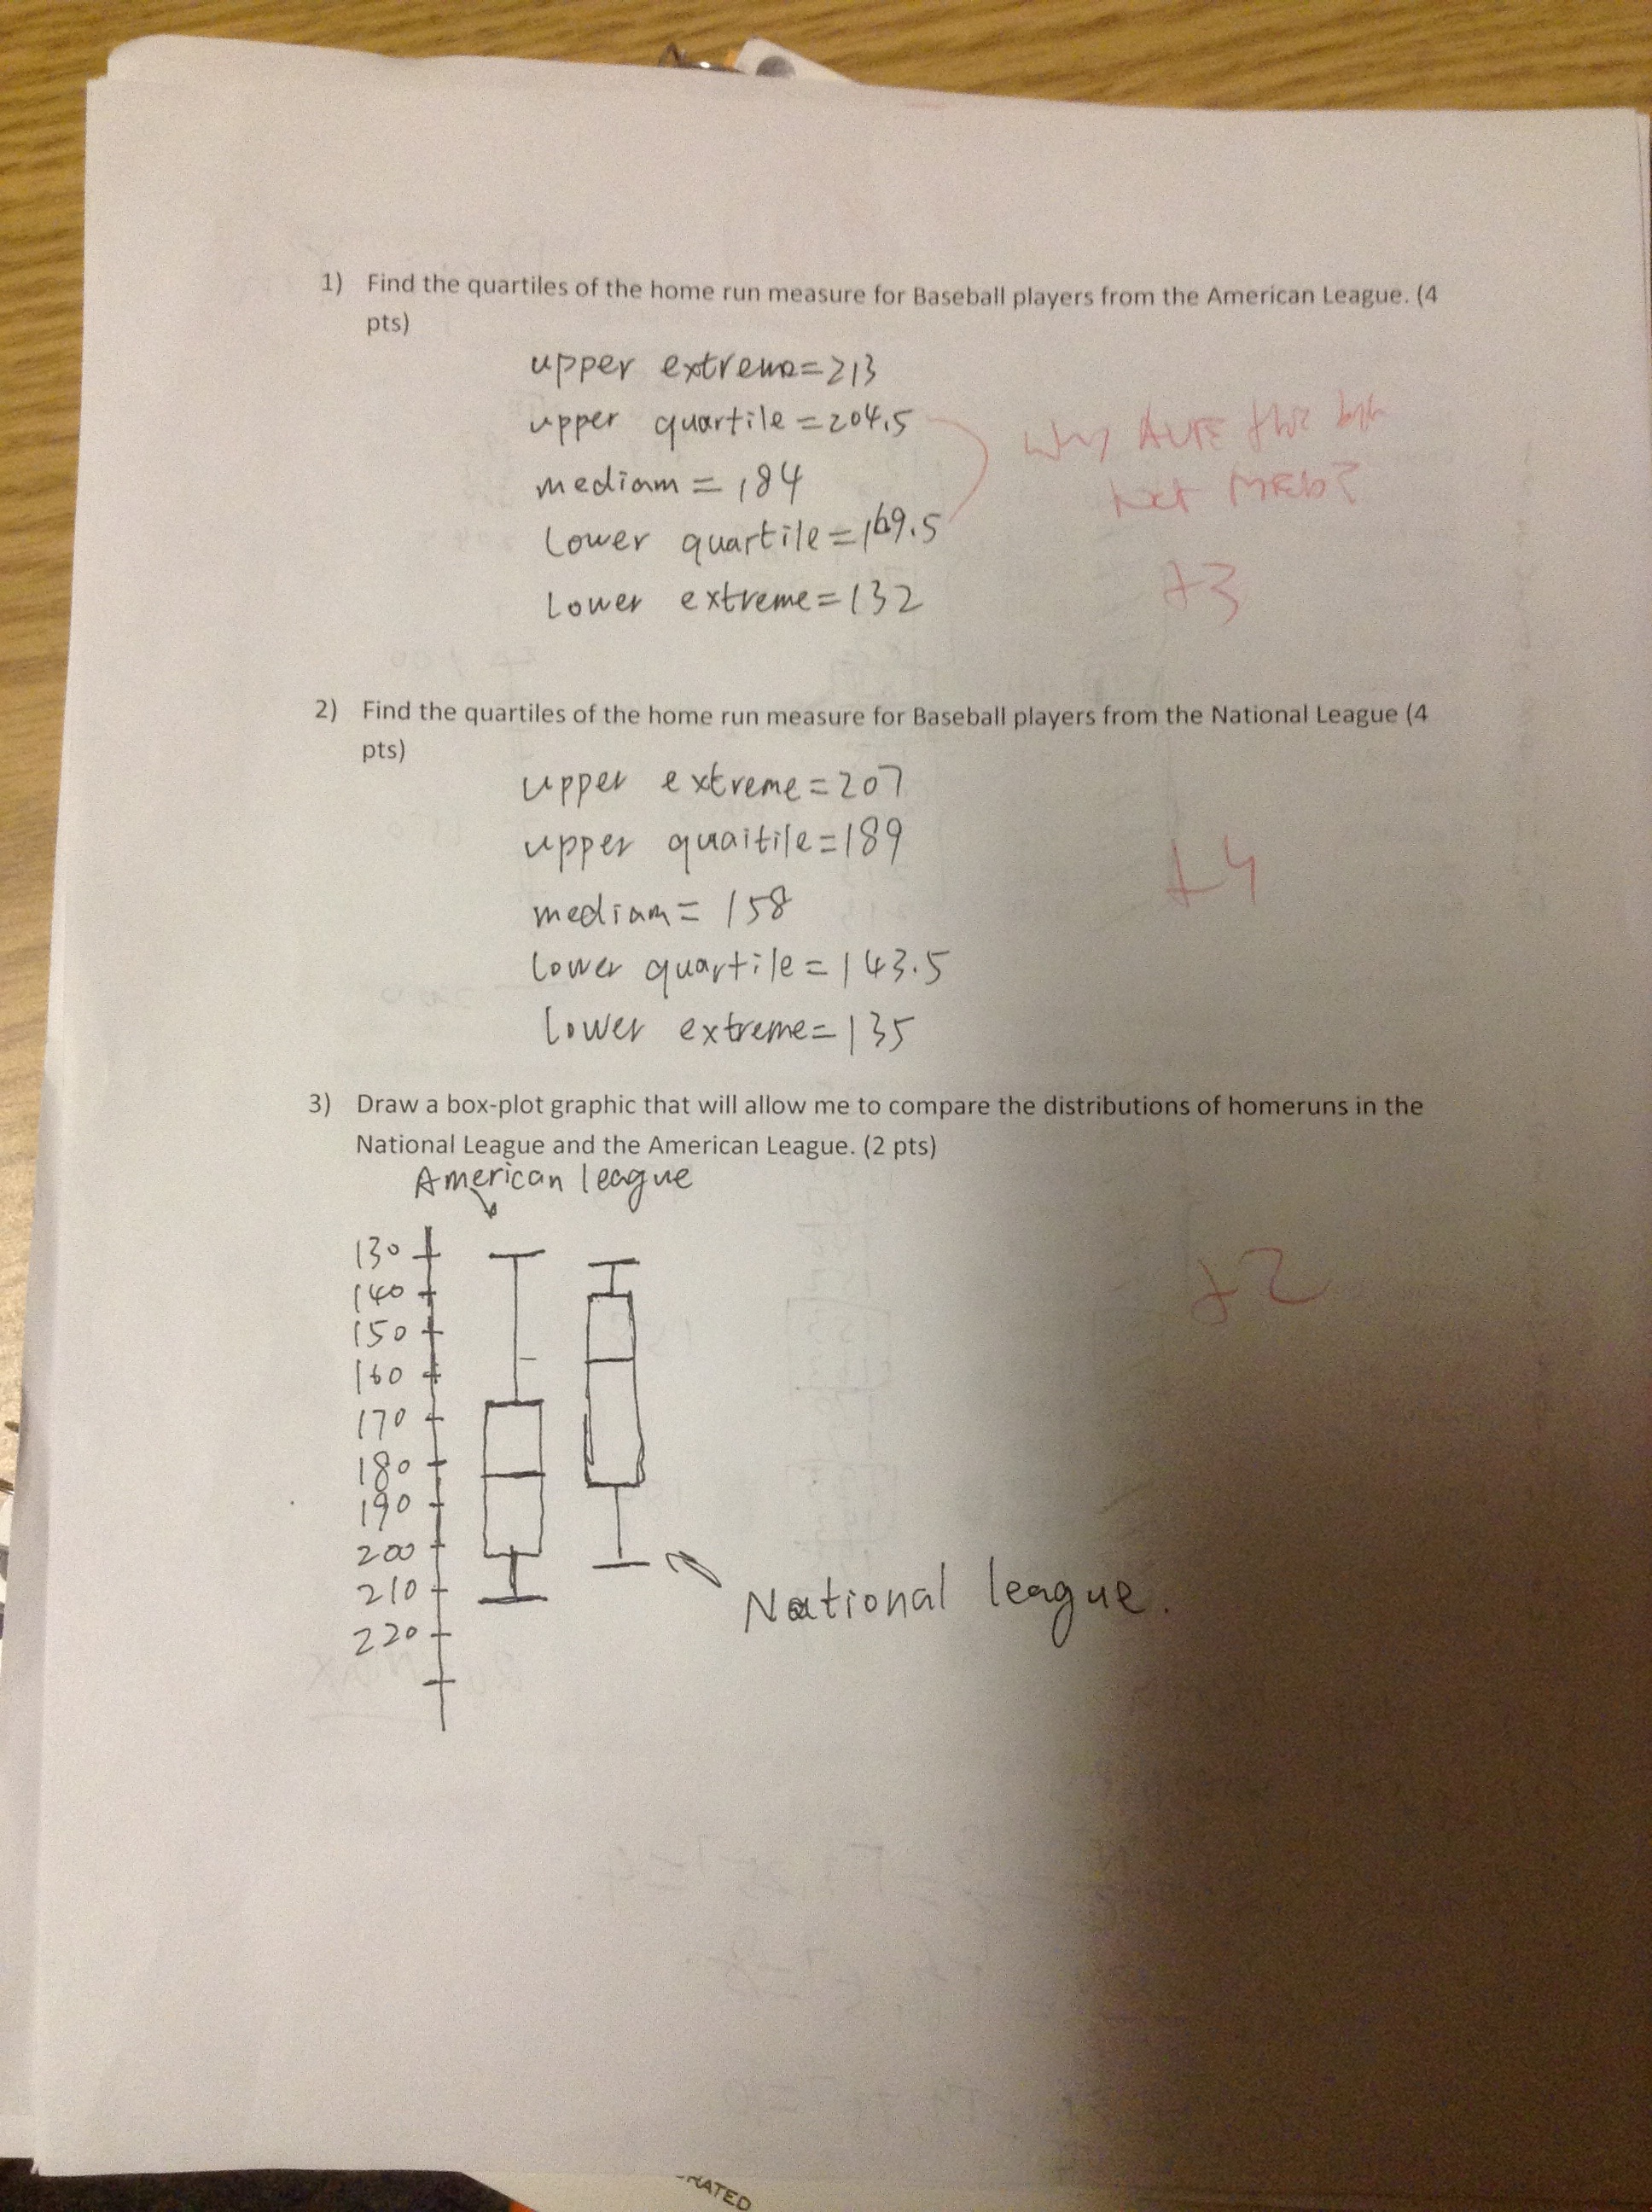 1) Find the quartiles of the home run measure for Baseball players from the American League. (4
pts)
upper extreme=213
upper quartile=204.5
mediam=184
lower quartile=169.5
lower extreme=132
+3
2) Find the quartiles of the home run measure for Baseball players from the National League (4
pts)
upper extreme=207
upper quaitile=189
mediam=158
lower quartile=143.5
lower extreme=135
+4
3) Draw a box-plot graphic that will allow me to compare the distributions of homeruns in the
National League and the American League. (2 pts)
American league
130
140
150
160
170
180
190
200
210
220
+2
National league.
RATED